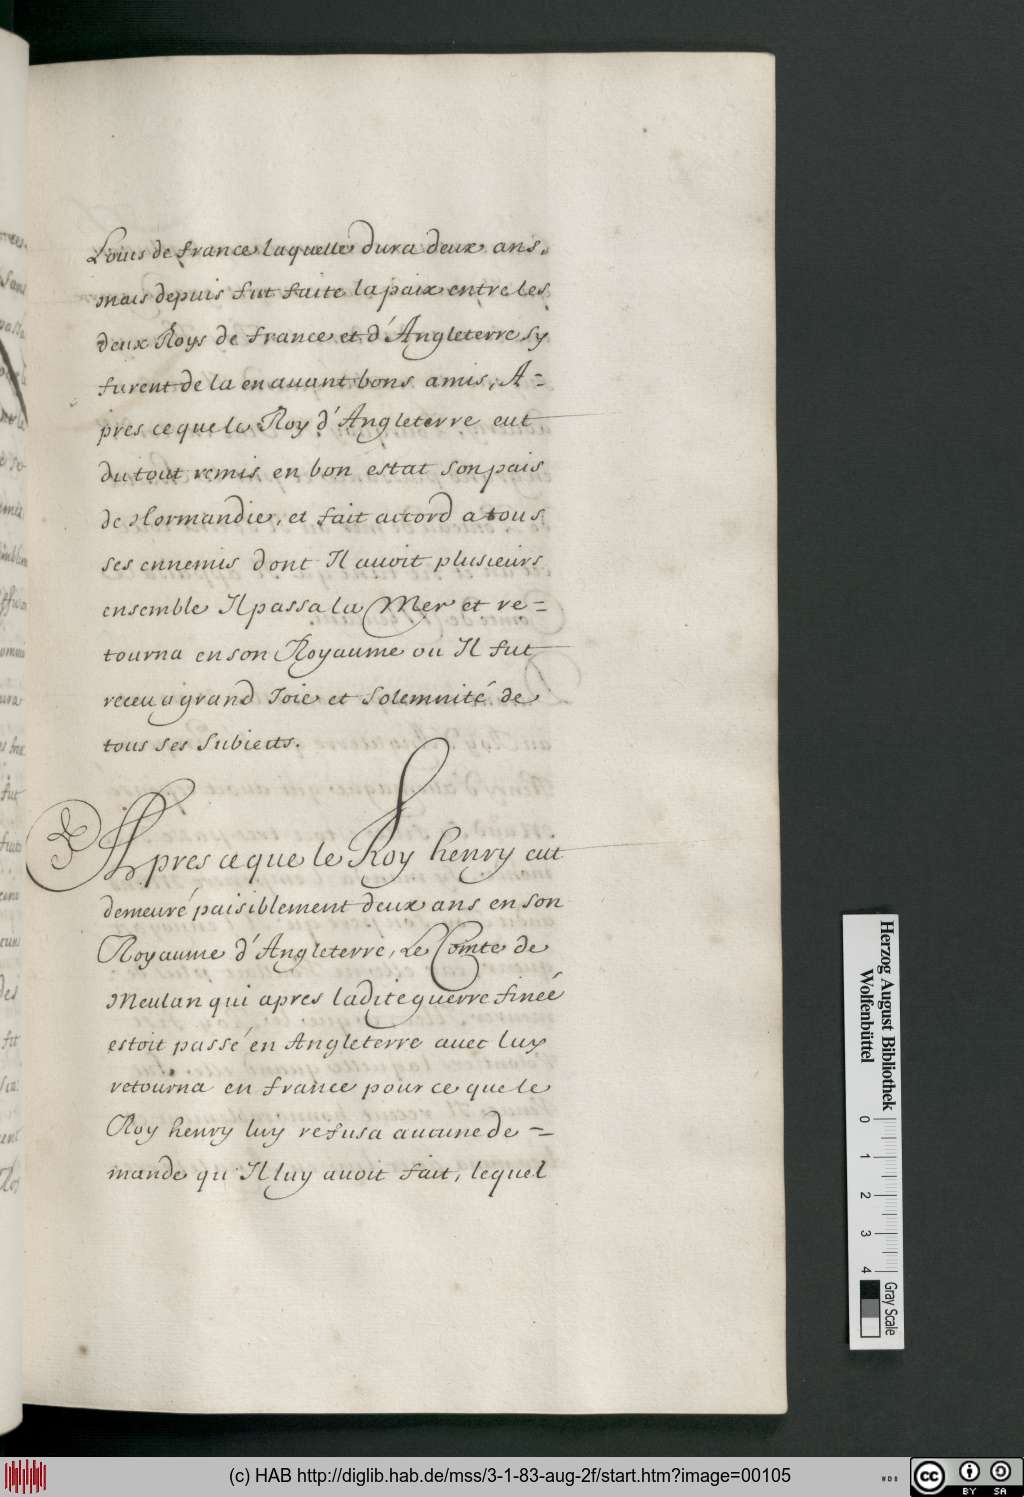 Louis de france laquelle dura deux ans,
mais depuis fut faite la paix entre les
deux Roys de france et d'Angleterre sy
furent de la en auant bons amis, A=
pres ce que le Roy d'Angleterre eut
du tout remis en bon estat son pais
de Normandie, et fait accord a tous
ses ennemis dont Il auoit plusieurs
ensemble Il passa la Mer et re=
tourna en son Royaume ou Il fut
receu a grand Joie et solemnité de
tous ses subiects.
Apres ce que le Roy henry eut
demeuré paisiblement deux ans en son
Royaume d'Angleterre, Le Comte de
Meulan qui apres ladite guerre finéé
estoit passé en Angleterre auec luy
retourna en france pour ce que le
Roy henry luy refusa aucune de=
mande qu'Il luy auoit fait, lequel
Herzog August Bibliothek
Wolfenbüttel
0 1 2 3 4
Gray Scale
(c) HAB http://diglib.hab.de/mss/3-1-83-aug-2f/start.htm?image=00105
WDB
cc BY SA